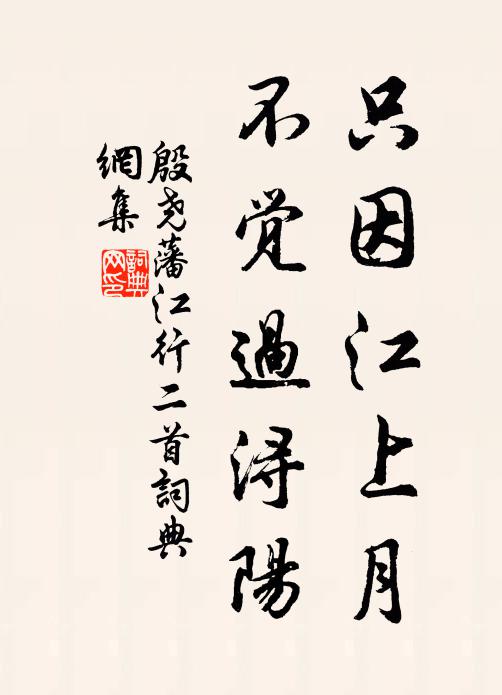 只因江上月
不觉過浔陽
殷尧藩江行二首詞典
網集
詞典
网印